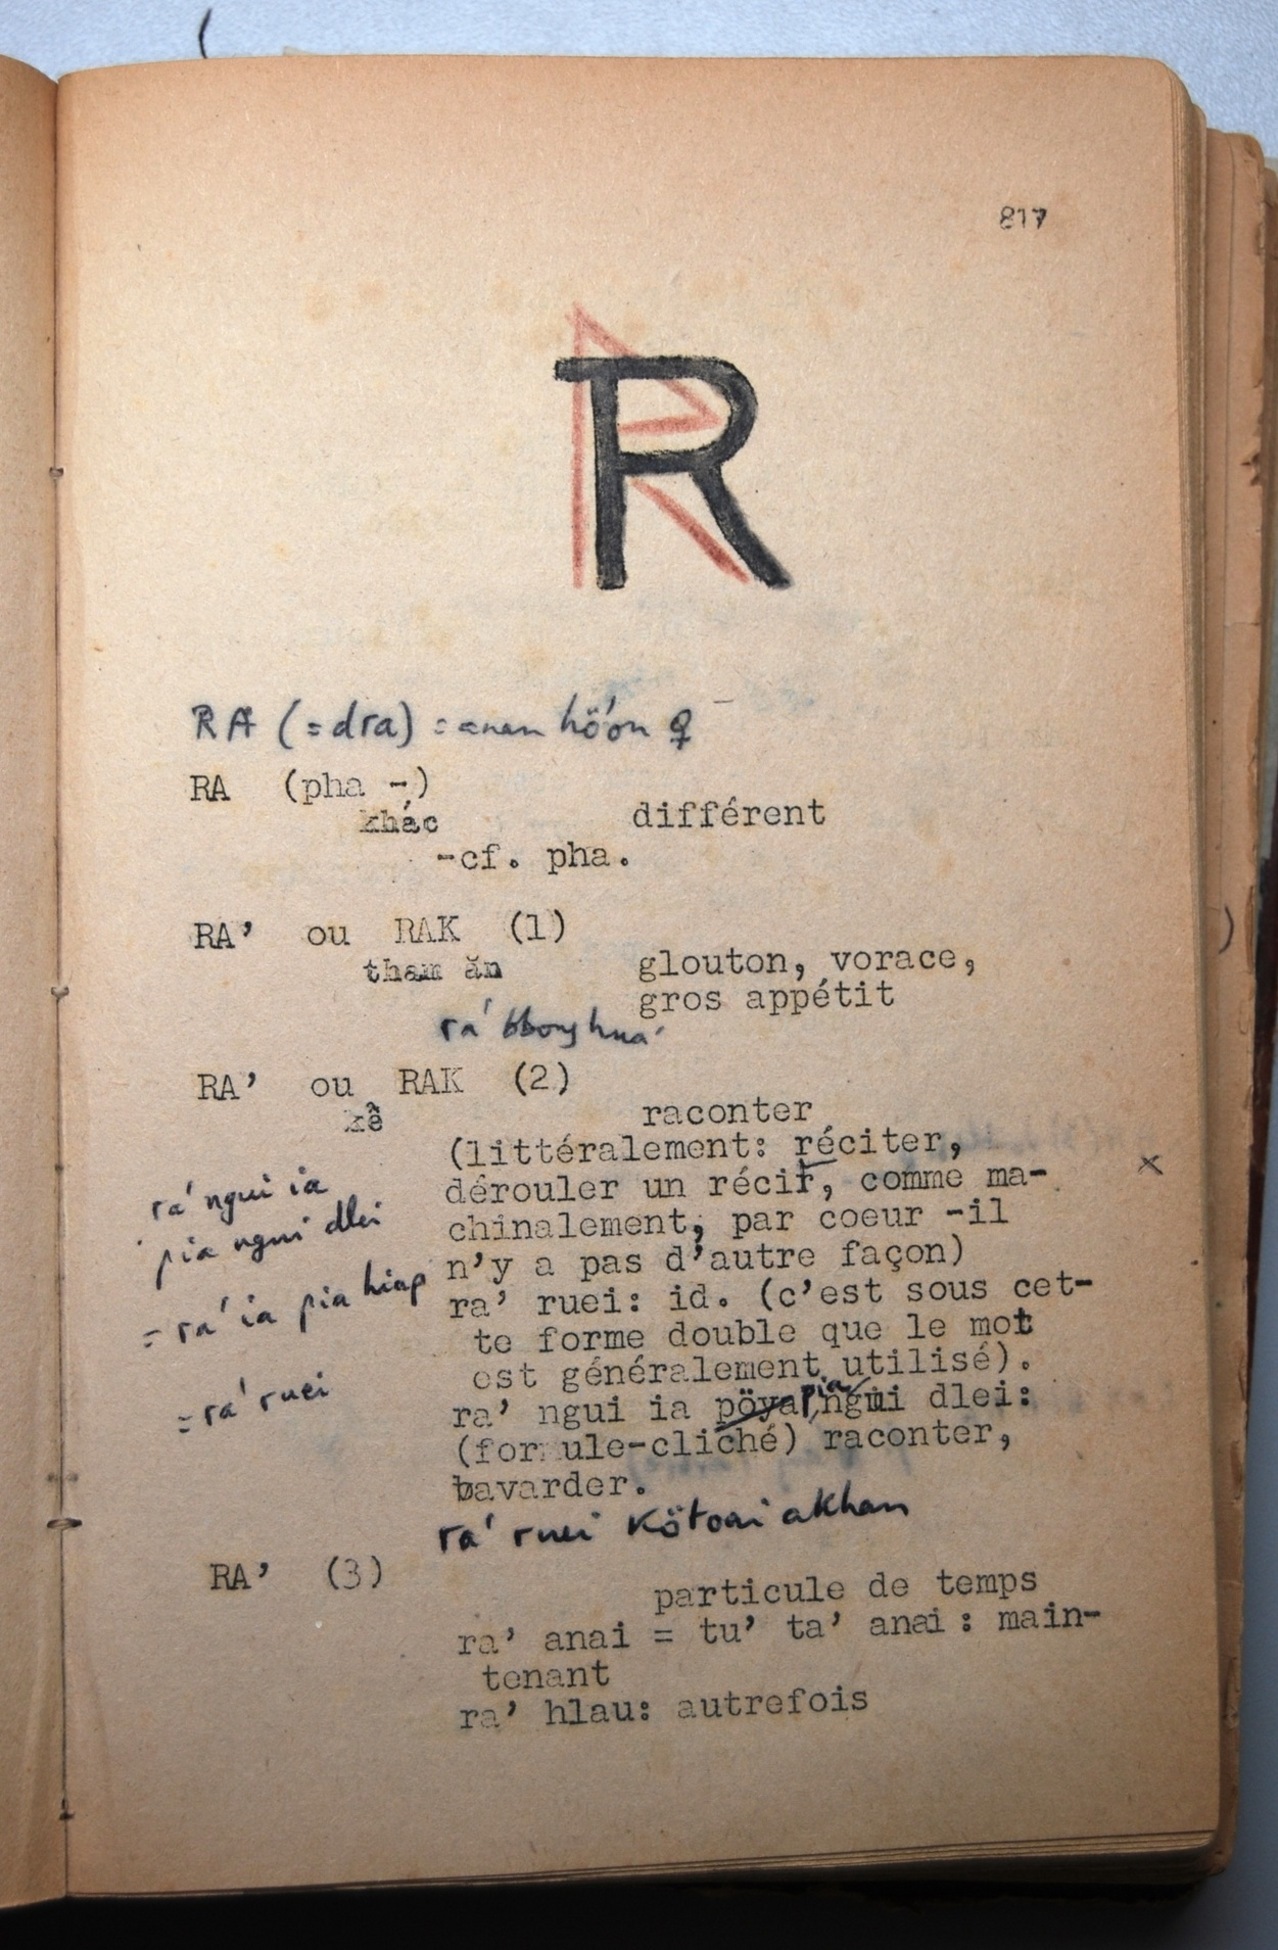 817
R
RA (=dra) = anan hö'on ♀
RA (pha -)
khác différent
-cf. pha.
RA’ ou RAK (1)
tham ăn glouton, vorace,
gros appétit
ra' bbong hua'
RA’ ou RAK (2)
kể raconter
(littéralement: réciter,
dérouler un récit, comme ma-
chinalement, par coeur -il
n’y a pas d’autre façon)
ra’ ruei: id. (c’est sous cet-
te forme double que le mot
est généralement utilisé).
ra’ ngui ia pia ngui dlei:
(formule-cliché) raconter,
bavarder.
ra' ruei kötoai akhan
ra' ngui ia
pia ngui dlei
= ra' ia pia hiap
= ra' ruei
x
RA’ (3)
particule de temps
ra’ anai = tu’ ta’ anai : main-
tenant
ra’ hlau: autrefois